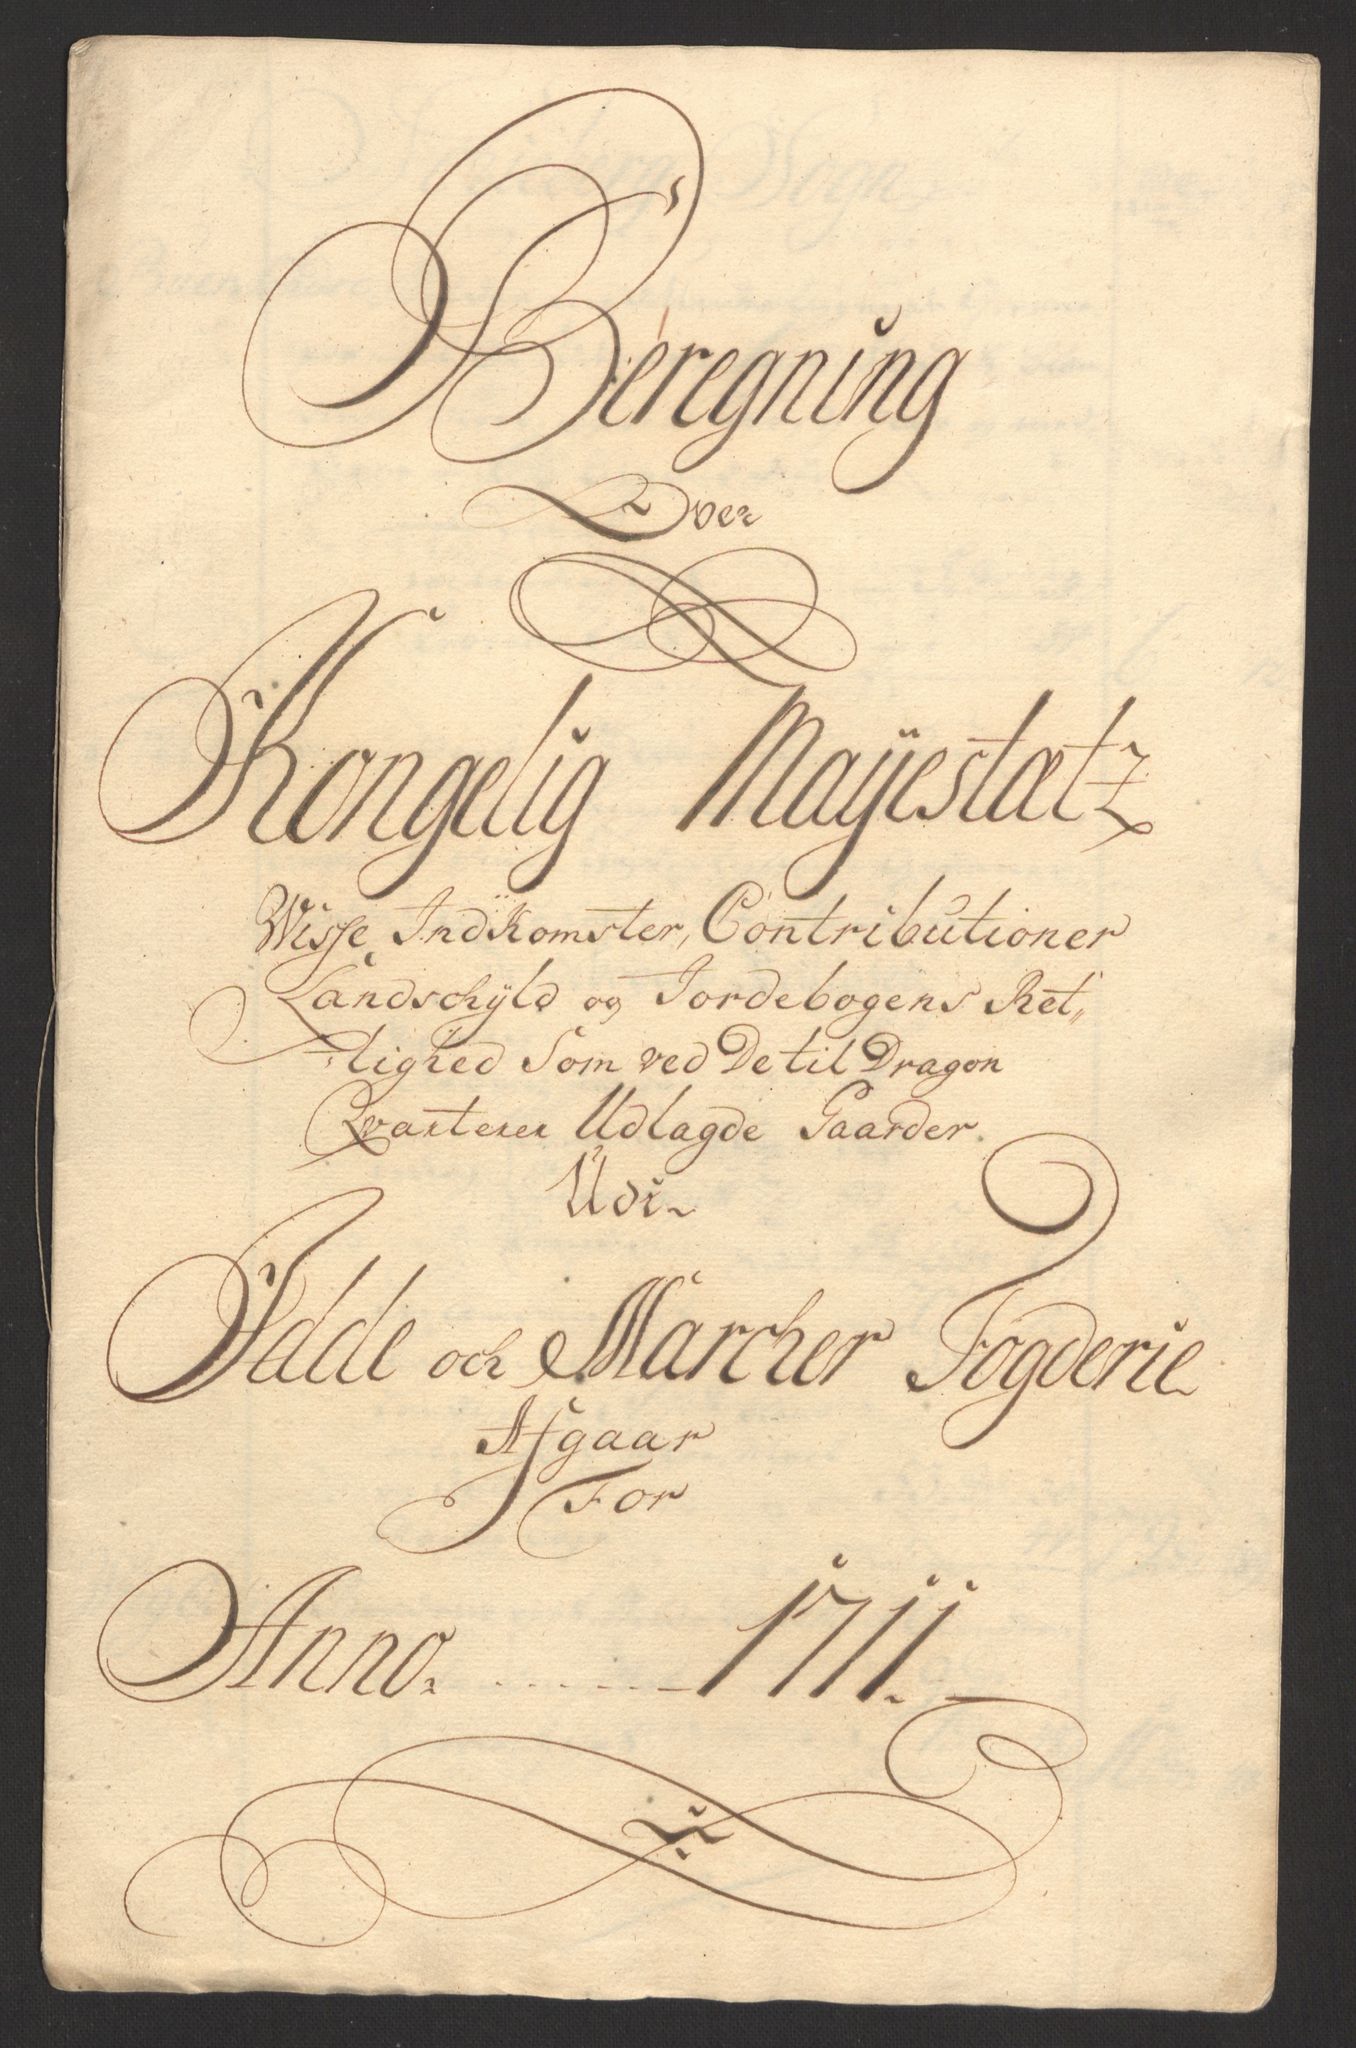 Beregning
Over
Kongelig Mayestætz
Wisse Indkomster, Contributioner
Landschyld og Jordebogens Ret,,
,,lighed Som ved De til Dragon
Qvarterer Udlagde Gaarder
Udi
Idde och Marcher Fogderie
Afgaar
For
Anno. ...... 1711.